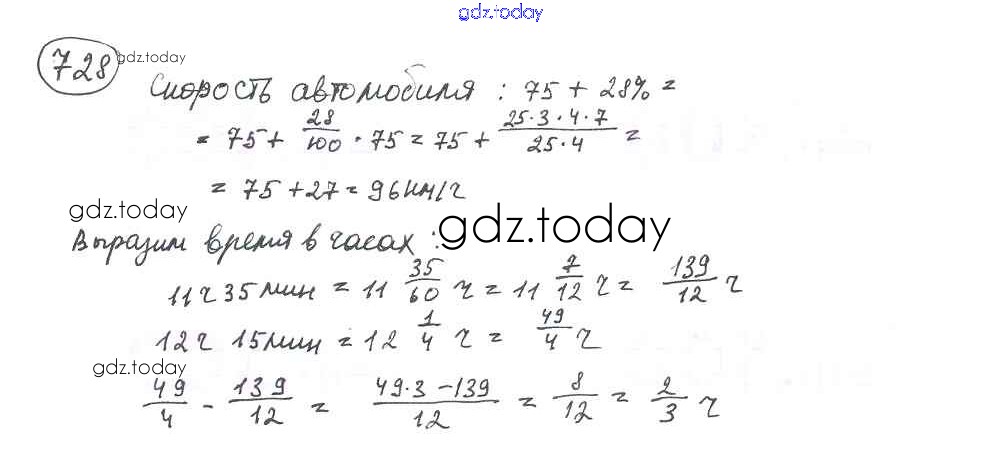 gdz.today
728 gdz.today
Скорость автомобиля : 75 + 28% =
= 75 + 28/100 · 75 = 75 + 25·3·4·7/25·4 =
= 75 + 27 = 96 км/ч
gdz.today
Выразим время в часах : gdz.today
11ч 35 мин = 11 35/60 ч = 11 7/12 ч = 139/12 ч
12ч 15 мин = 12 1/4 ч = 49/4 ч
gdz.today
49/4 - 139/12 = 49·3 - 139/12 = 8/12 = 2/3 ч